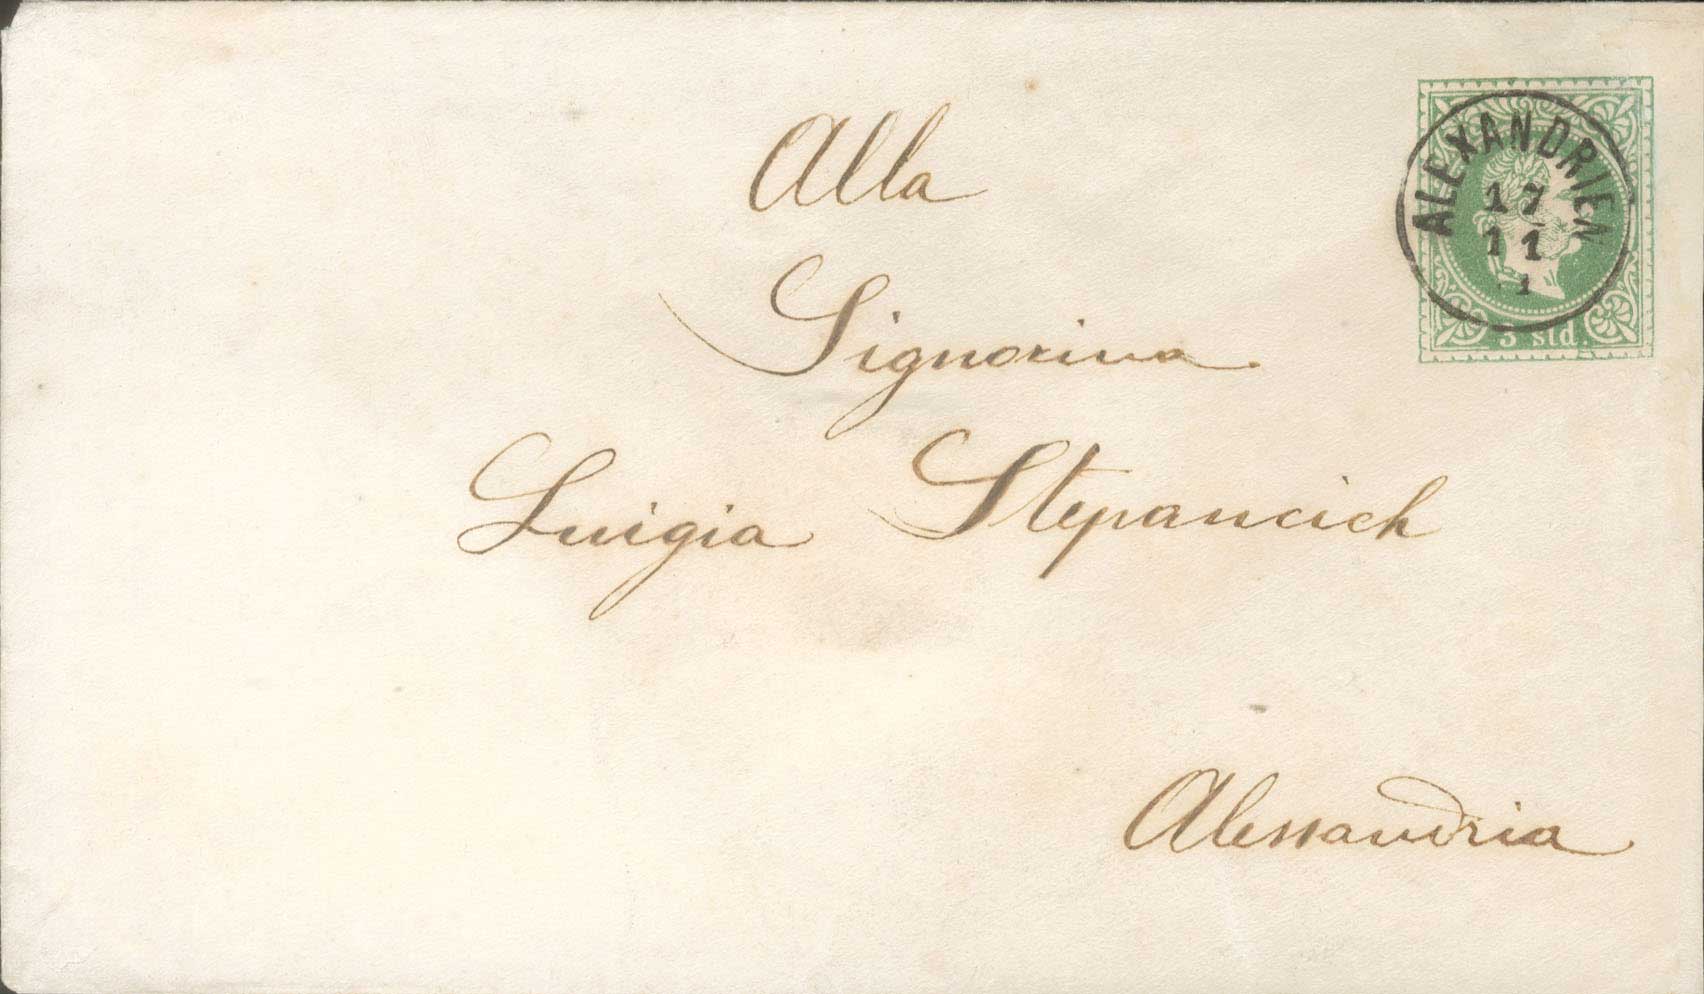 Alla
Signorina
Luigia Stepancich
Alessandria
ALEXANDRIEN
17
11
3 sld.